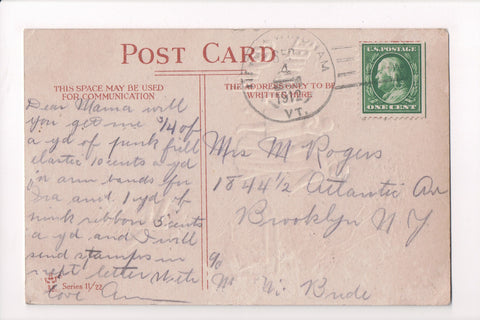 POST CARD
THIS SPACE MAY BE USED
FOR COMMUNICATION
THE ADDRESS ONLY TO BE
WRITTEN HERE
SEP
4
1912
VT.
U.S. POSTAGE
ONE CENT
Dear Mama will
you get me 3/4 of
a yd of pink frill
elastic 10 cents a yd
in arm bands for
Ira and 1 yd of
pink ribbon 5 cents
a yd and I will
send stamps in
next letter With
love
Series 11/22
Mrs M Rogers
1844 1/2 Atlantic Av
Brooklyn N Y
c/o
Mr Wm Bride